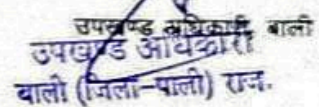 उपखण्ड अधिकारी बाली
उपखण्ड अधिकारी
बाली (जिला-पाली) राज.